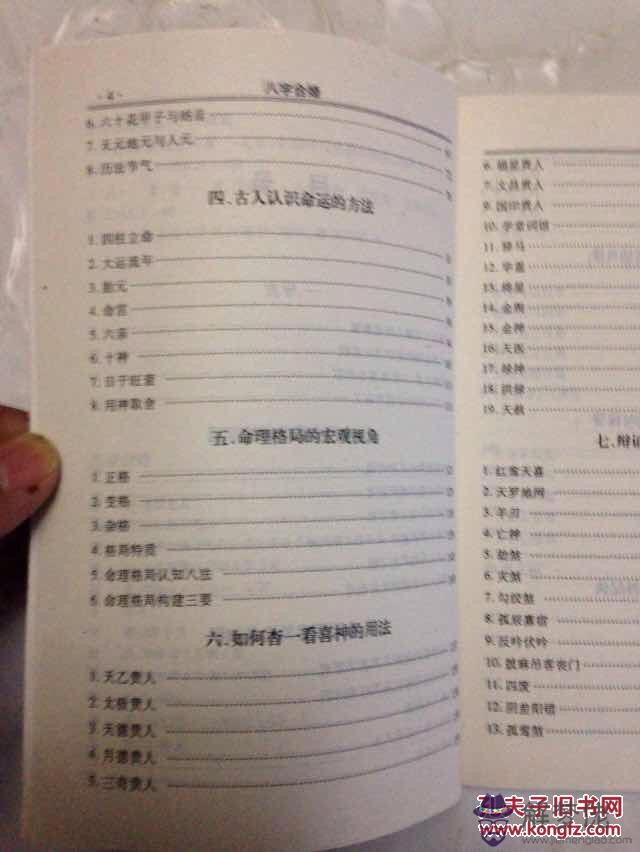 八字合婚
6. 六十花甲子与纳音
7. 天元地元与人元
8. 历法节气
四. 古人认识命运的方法
1. 四柱立命
2. 大运流年
3. 胎元
4. 命宫
5. 六亲
6. 十神
7. 日干旺衰
8. 用神取舍
五. 命理格局的宏观视角
1. 正格
2. 变格
3. 杂格
4. 格局特质
5. 命理格局认知八法
6. 命理格局构建三要
六. 如何查一看喜神的用法
1. 天乙贵人
2. 太极贵人
3. 天德贵人
4. 月德贵人
5. 三奇贵人
6. 福星贵人
7. 文昌贵人
9. 国印贵人
10. 学堂词馆
11. 驿马
12. 华盖
13. 将星
14. 金舆
15. 金神
16. 天医
17. 禄神
18. 拱禄
19. 天赦
七. 辩证
1. 红鸾天喜
2. 天罗地网
3. 羊刃
4. 亡神
5. 劫煞
6. 灾煞
7. 勾绞煞
8. 孤辰寡宿
9. 反吟伏吟
10. 披麻吊客丧门
11. 四废
12. 阴差阳错
13. 孤鸾煞
夫子旧书网
www.kongfz.com
www.jiemengliao.com